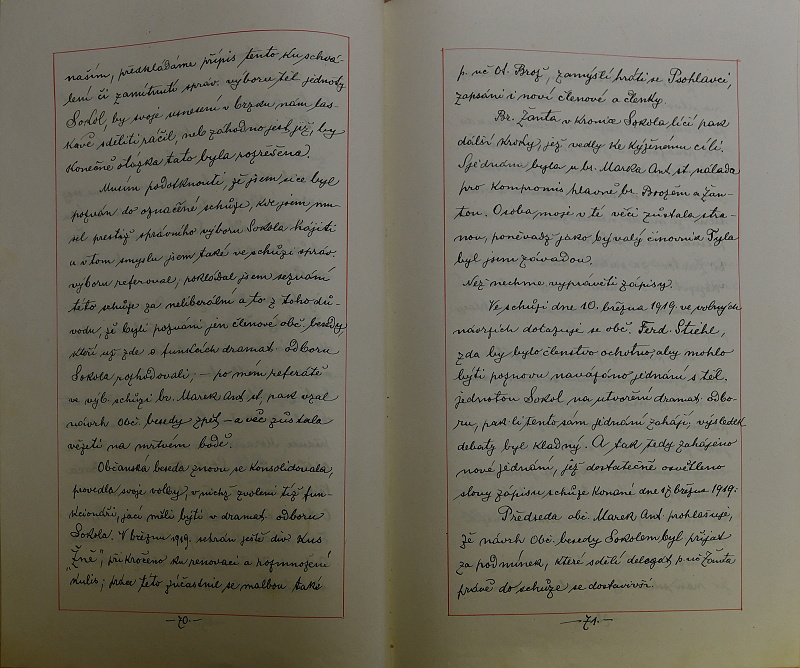 našim, předkládáme přípis tento ku schvá-
lení či zamítnutí správ. výboru těl. jednoty
Sokol, by svoje usnesení v brzdu nám las-
kavě sděliti ráčil, neb záhodno jest již, by
konečně otázka tato byla rozřešena.
Musím podotknouti, že jsem sice byl
pozván do označené schůze, kde jsem mu-
sel prestiž správního výboru Sokola hájiti
a v tom smyslu jsem také ve schůzi správ.
výboru referoval, pokládal jsem seznání
této schůze za neliberální a to z toho dů-
vodu, že byli pozváni jen členové obč. besedy
kteří už zde o funkcích dramat. odboru
Sokola rozhodovali; – po mém referátě
ve výb. schůzi br. Marek Ant. st. pak vzal
návrh Obč. besedy zpět – a věc zůstala
vězeti na mrtvém bodě.
Občanská beseda znovu se konsolidovala,
provedla svoje volby, v nichž zvoleni tíž fun-
kcionáři, jací měli býti v dramat. odboru
Sokola. V březnu 1919. sehrán ještě div. kus
"Žně", přikročeno ku renovaci a rozmnožení
kulis; práce této zúčastnil se malbou také
—70.—
p. uč. A. Brož, zamýšlí hráti se Psohlavci,
zapsáni i noví členové a členky.
Br. Žanta v kronice Sokola líčí pak
další kroky, jež vedly ke kýženému cíli.
Sjednána byla u br. Marka Ant. st. nálada
pro kompromis hlavně br. Brožem a Žan-
tou. Osoba moje v té věci zůstala stra-
nou, poněvadž jako bývalý činovník Tyla
byl jsem závadou.
Než nechme vyprávěti zápisy.
Ve schůzi dne 10. března 1919. ve volných
návrzích dotazuje se obč. Ferd. Stiehl,
zda by bylo členstvo ochotno, aby mohlo
býti poznovu navázáno jednání s těl.
jednotou Sokol na utvoření dramat. odbo-
ru, pak-li tento sám jednání zahájí; výsledek
debaty byl kladný. A tak tedy zahájeno
nové jednání, jež dostatečně osvětleno
slovy zápisu schůze konané dne 17. března 1919:
Předseda obč. Marek Ant. prohlašuje,
že návrh Obč. besedy Sokolem byl přijat
za podmínek, které sdělí delegát p. uč. Žanta
právě do schůze se dostavivší.
—71.—